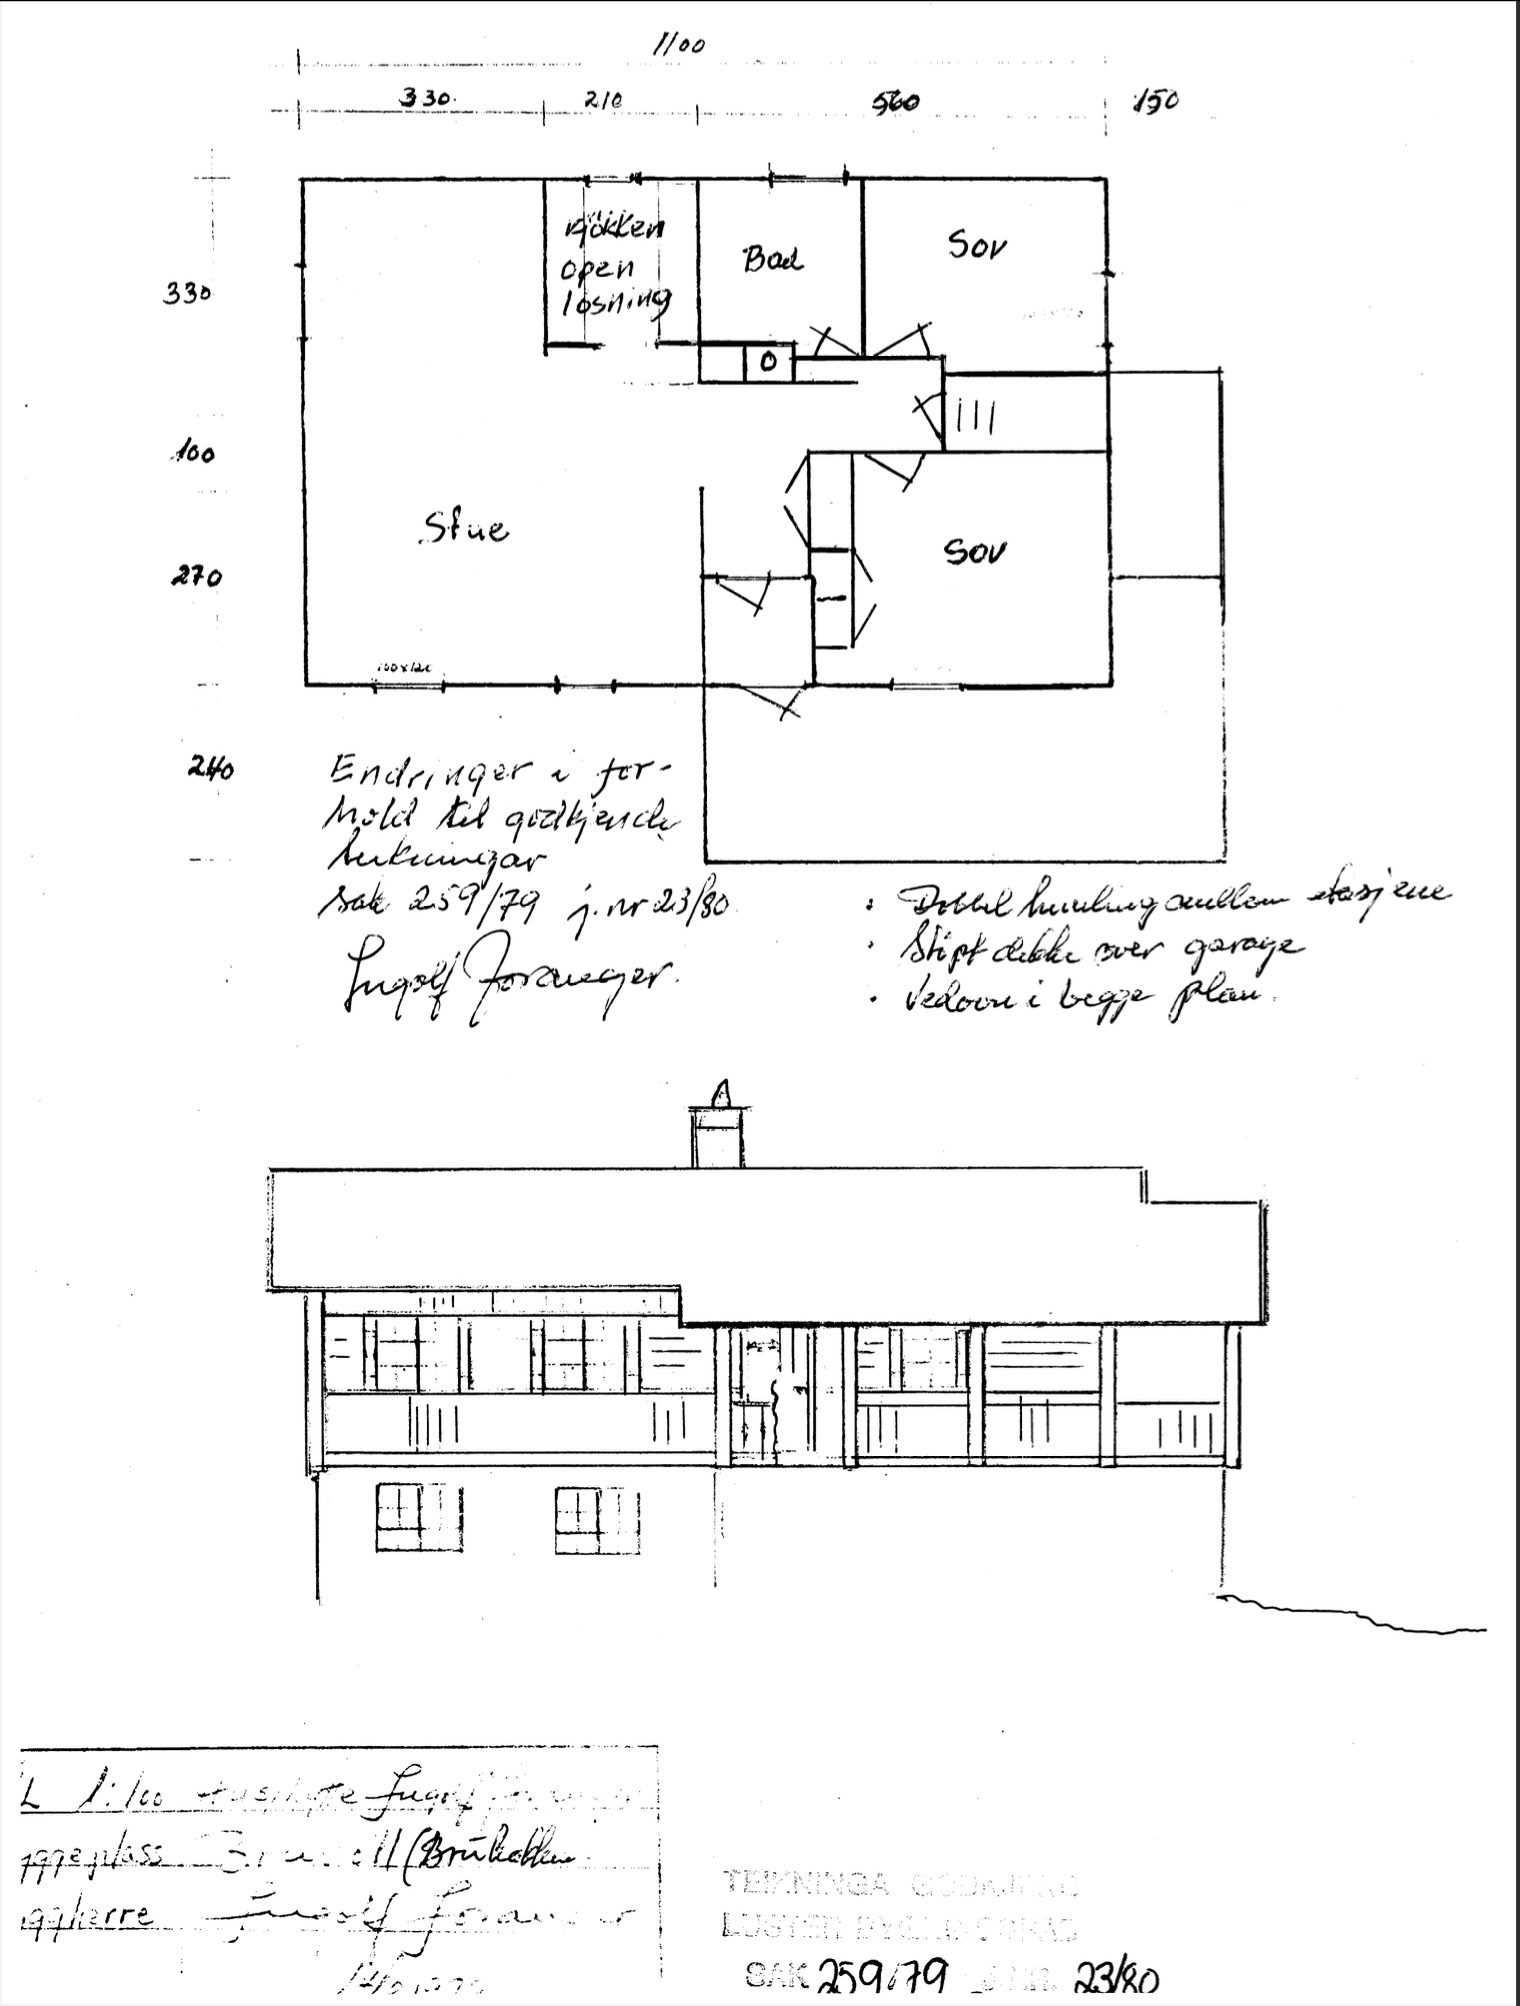 1100
330 210 560 150
330
100
270
240
Kjökken
open
losning
Bad
Sov
Stue
Sov
100x120
Endringer i for-
hold til godkjende
teikningar
sak 259/79 j.nr 23/80
Ingolf Foranger.
: Dobbel himling mellom etasjene
· Støpt dekke over garage
· Vedovn i begge plan.
L 1:100 Ingolf
ggeplass (Brúhølken
ggherre Ingolf Foranger
TEIKNINGA GODKJEND
LUSTER BYGNINGSRÅD
SAK 259/79 J.NR. 23/80